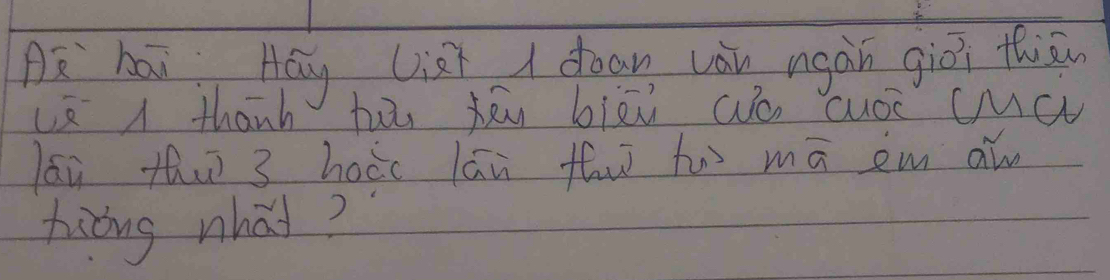 Đề bài: Hãy viết 1 đoạn văn ngắn giới thiệu
về 1 thành tựu tiêu biểu của cuộc CMCN
lần thứ 3 hoặc lần thứ tư mà em ấn
tượng nhất?